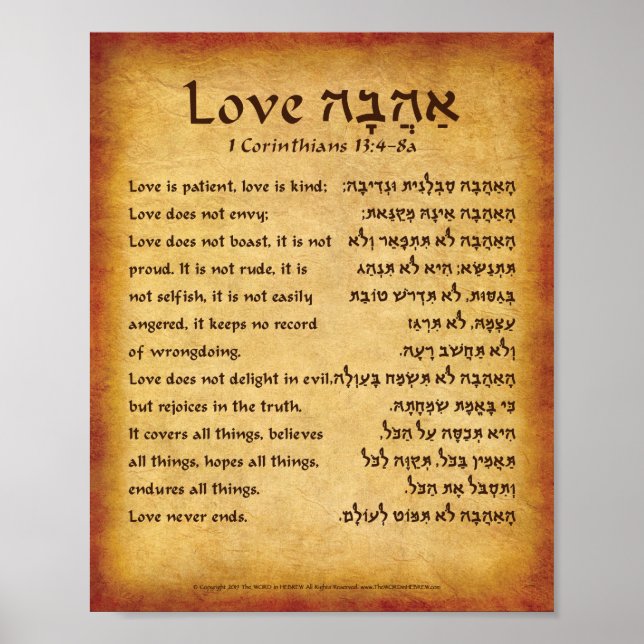 Love אַהֲבָה
1 Corinthians 13:4-8a
Love is patient, love is kind; הָאַהֲבָה סַבְלָנִית וּנְדִיבָה;
Love does not envy; הָאַהֲבָה אֵינָהּ מְקַנֵּאת;
Love does not boast, it is not הָאַהֲבָה לֹא תִּתְפָּאֵר וְלֹא
proud. It is not rude, it is תִּתְנַשֵּׂא; הִיא לֹא תִּנְהַג
not selfish, it is not easily בְּגַסּוּת, לֹא תִּדְרֹשׁ טוֹבַת
angered, it keeps no record עַצְמָהּ, לֹא תִּרְגַּז
of wrongdoing. וְלֹא תַּחֲשֹׁב רָעָה.
Love does not delight in evil, הָאַהֲבָה לֹא תִּשְׂמַח בָּעַוְלָה,
but rejoices in the truth. כִּי בָּאֱמֶת שִׂמְחָתָהּ.
It covers all things, believes הִיא תְּכַסֶּה עַל הַכֹּל,
all things, hopes all things, תַּאֲמִין בַּכֹּל, תְּקַוֶּה לַכֹּל
endures all things. וְתִסְבֹּל אֶת הַכֹּל.
Love never ends. הָאַהֲבָה לֹא תִּמּוֹט לְעוֹלָם.
© Copyright 2017 The WORD in HEBREW All Rights Reserved- www.TheWORDinHEBREW.com